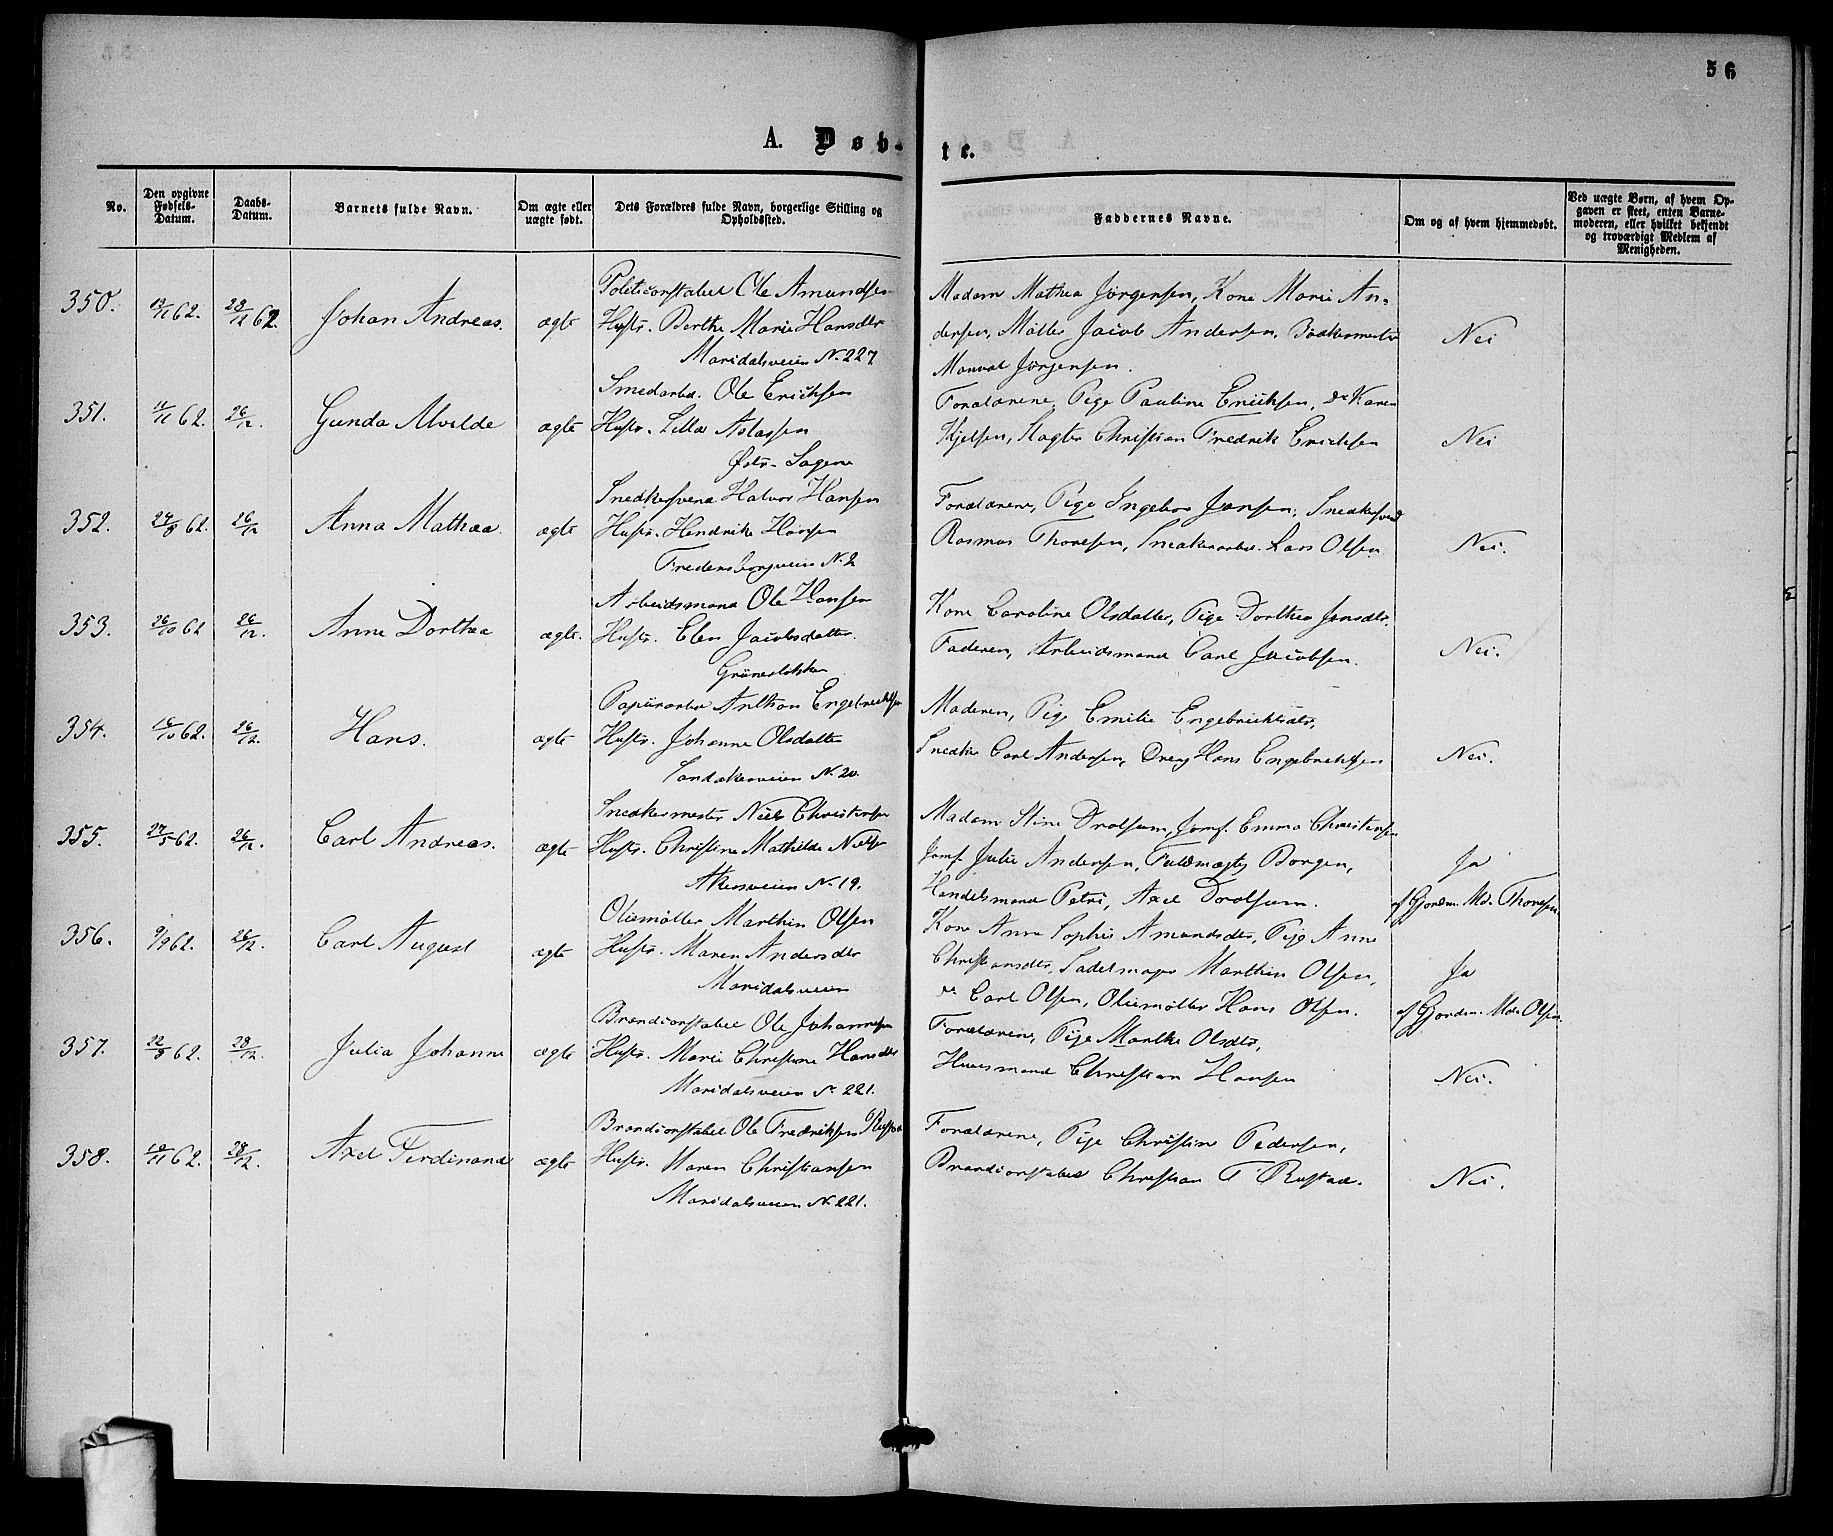 56
A. Døb-
te.
No.
Den opgivne Fødsels-Datum.
Daabs-Datum.
Barnets fulde Navn.
Om ægte eller uægte født.
Dets Forældres fulde Navn, borgerlige Stilling og Opholdssted.
Faddernes Navne.
Om og af hvem hjemmedøbt.
Ved uægte Børn, af hvem Opgaven er skeet, enten Barnemoderen, eller hvilket bekjendt og troværdigt Medlem af Menigheden.
350. 62. 28/12 62. Johan Andreas. ægte
Politiconstabel Ole Amundsen
Hustr. Berthe Marie Hansdtr
Maridalsveien N. 227
Madam Mathea Jörgensen, Kone Marie An-
dersen, Møller Jacob Andersen, Bödkermester
Jörgensen.
Nei
351. 11/11 62. 26/12. Gunda Alvilde ægte
Smedarbr. Ole Ericksen
Hustr. Aslassen
Østr. Sagene
Forældrene, Pige Pauline Ericksen, do Karen
Kjelsen, Slagter Christian Fredrik Ericksen
Nei
352. 24/8 62. 26/12 Anna Mathea. ægte
Snedkersvend Halvor Hansen
Hustr. Hendrikke Hansen
Fredensborgveien N. 2
Forældrene, Pige Ingebor Jansen, Snedkersvend
Rasmus Thoresen, Snedkerarbr. Lars Olsen
Nei.
353. 26/10 62 26/12. Anne Dorthea ægte.
Arbeidsmand Ole Hansen
Hustr. Elen Jacobsdatter.
Grünerløkken
Kone Caroline Olsdatter, Pige Dorthea Jansdtr.
Faderen, Arbeidsmand Carl Jacobsen.
Nei.
354. 16/10 62. 26/12. Hans. ægte
Papiirarbr Anthon Engebrecktsen
Hustr. Johanne Olsdatter
Sandakerveien N. 20.
Moderen, Pige Emilie Engebricktsdtr,
Snedker Carl Andersen, Dreng Hans Engebrecktsen
Nei.
355. 27/5 62. 26/12. Carl Andreas. ægte
Snedkermester Niels Christensen
Hustr. Christine Mathilde
Akersveien N. 19.
Madam Stine Drolsum, Jomf. Emma Christensen
Jomf. Julie Andersen, Fuldmægtg Borgen,
Handelsmand Petri, Axel Drolsum.
Ja
af Gjordm. Md. Thoresen
356. 9/9 62. 26/12. Carl August ægte
Oliemøller Marthin Olsen
Hustr. Maren Andersdtr
Maridalsveien
Kone Anne Sophie Amundsdtr, Pige Anne
Christiansdtr, Sadelmager Marthin Olsen,
do Carl Olsen, Oliemøller Hans Olsen.
Ja
af Gjordm. Md. Olsen.
357. 22/8 62. 28/12. Julia Johanne ægte
Brandconstabel Ole Johannesen
Hustr. Marie Christine Hansdtr
Maridalsveien N. 221.
Forældrene, Pige Marthe Olsdtr,
Huusmand Christian Hansen
Nei.
358. 62. 28/12. Axel Ferdinand ægte
Brandconstabel Ole Fredriksen Rustad
Hustr. Maren Christiansen
Maridalsveien N. 221.
Forældrene, Pige Christine Pedersen,
Brandconstabel Christian F Rustad.
Nei.